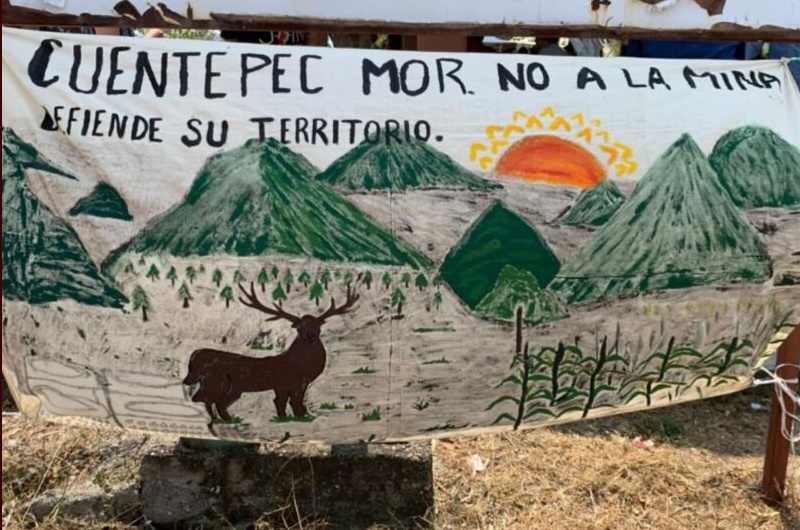 CUENTEPEC MOR. NO A LA MINA
DEFIENDE SU TERRITORIO.